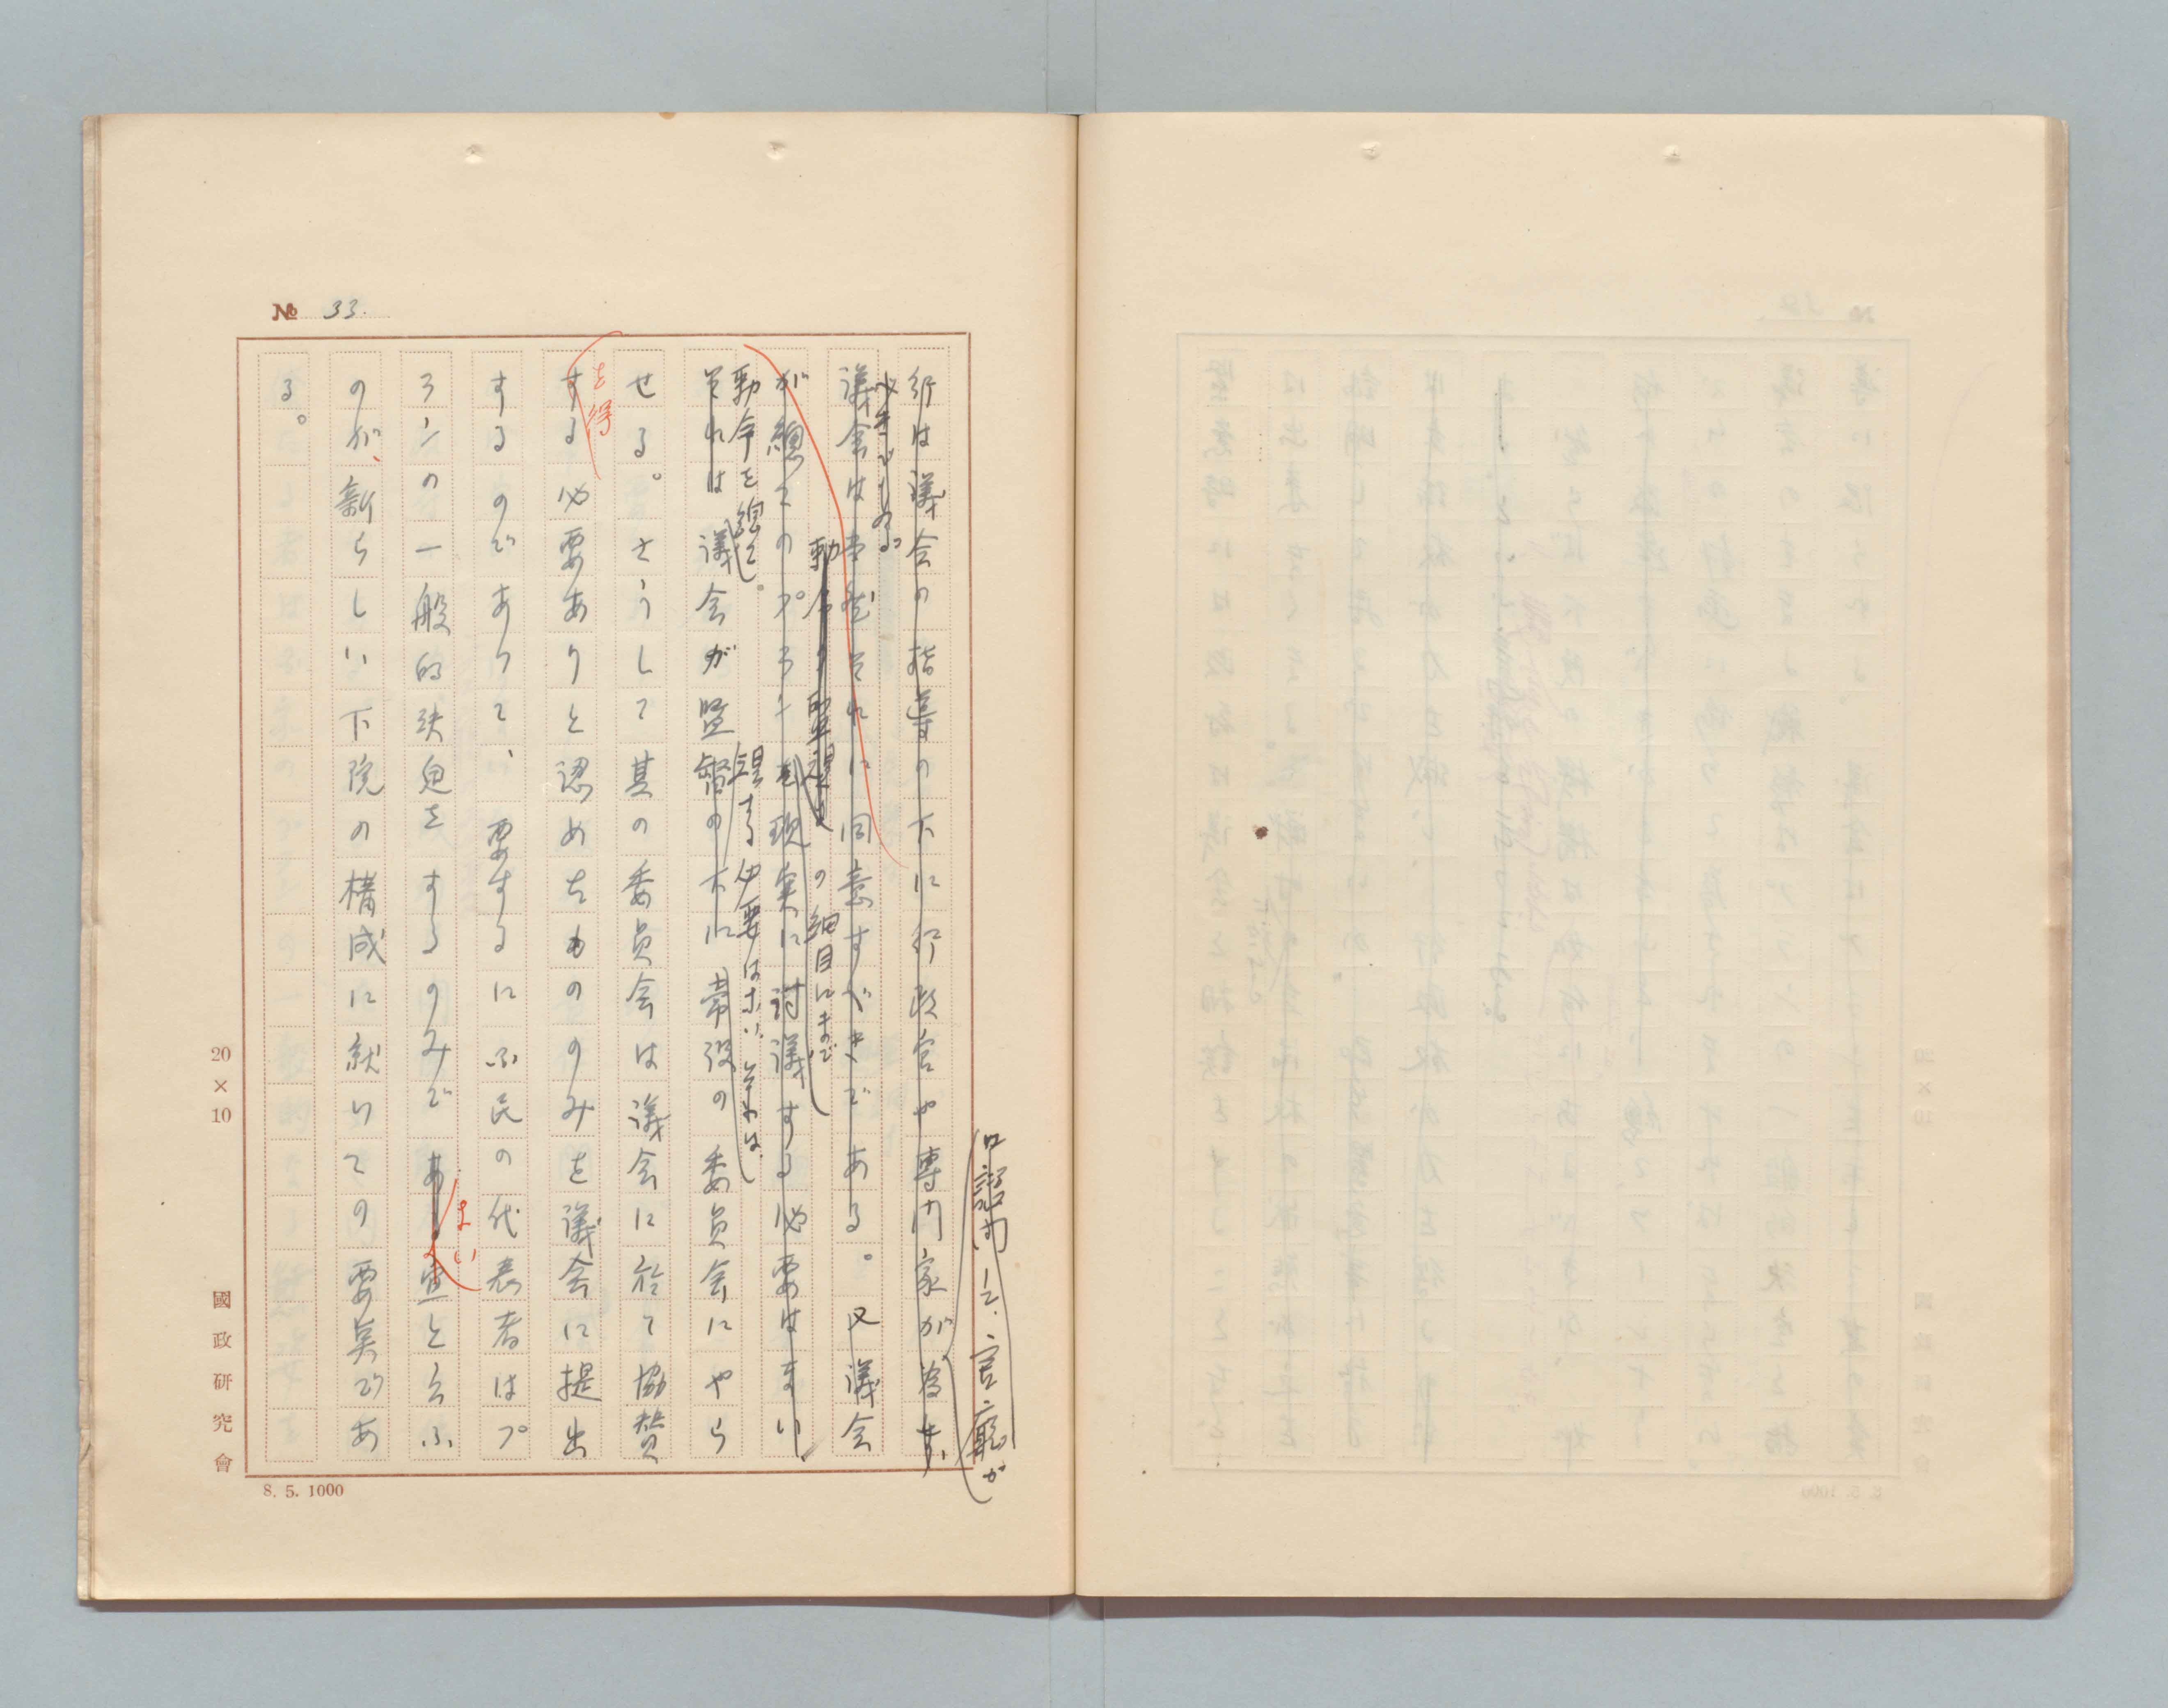 № 33.
行は議会の指導の下に行政官や専門家が為す、
に諮問して、官廳が
べきである。
議会は事後それに同意すべきである。又議会
勅令の
の細目にまで
が總てのプランを現実に討議する必要はない、
勅令を
する必要はない、それは
それは議会が監督の下に常設の委員会にやら
せる。さうして其の委員会は議会に於て協賛
を得
する必要ありと認めたもののみを議会に提出
するのであつて、要するに民の代表者はプ
ランの一般的決定をするのみで
よい
と云ふ
のが、新らしい下院の構成に就いての要点であ
る。
20×10
國政研究會
8. 5. 1000